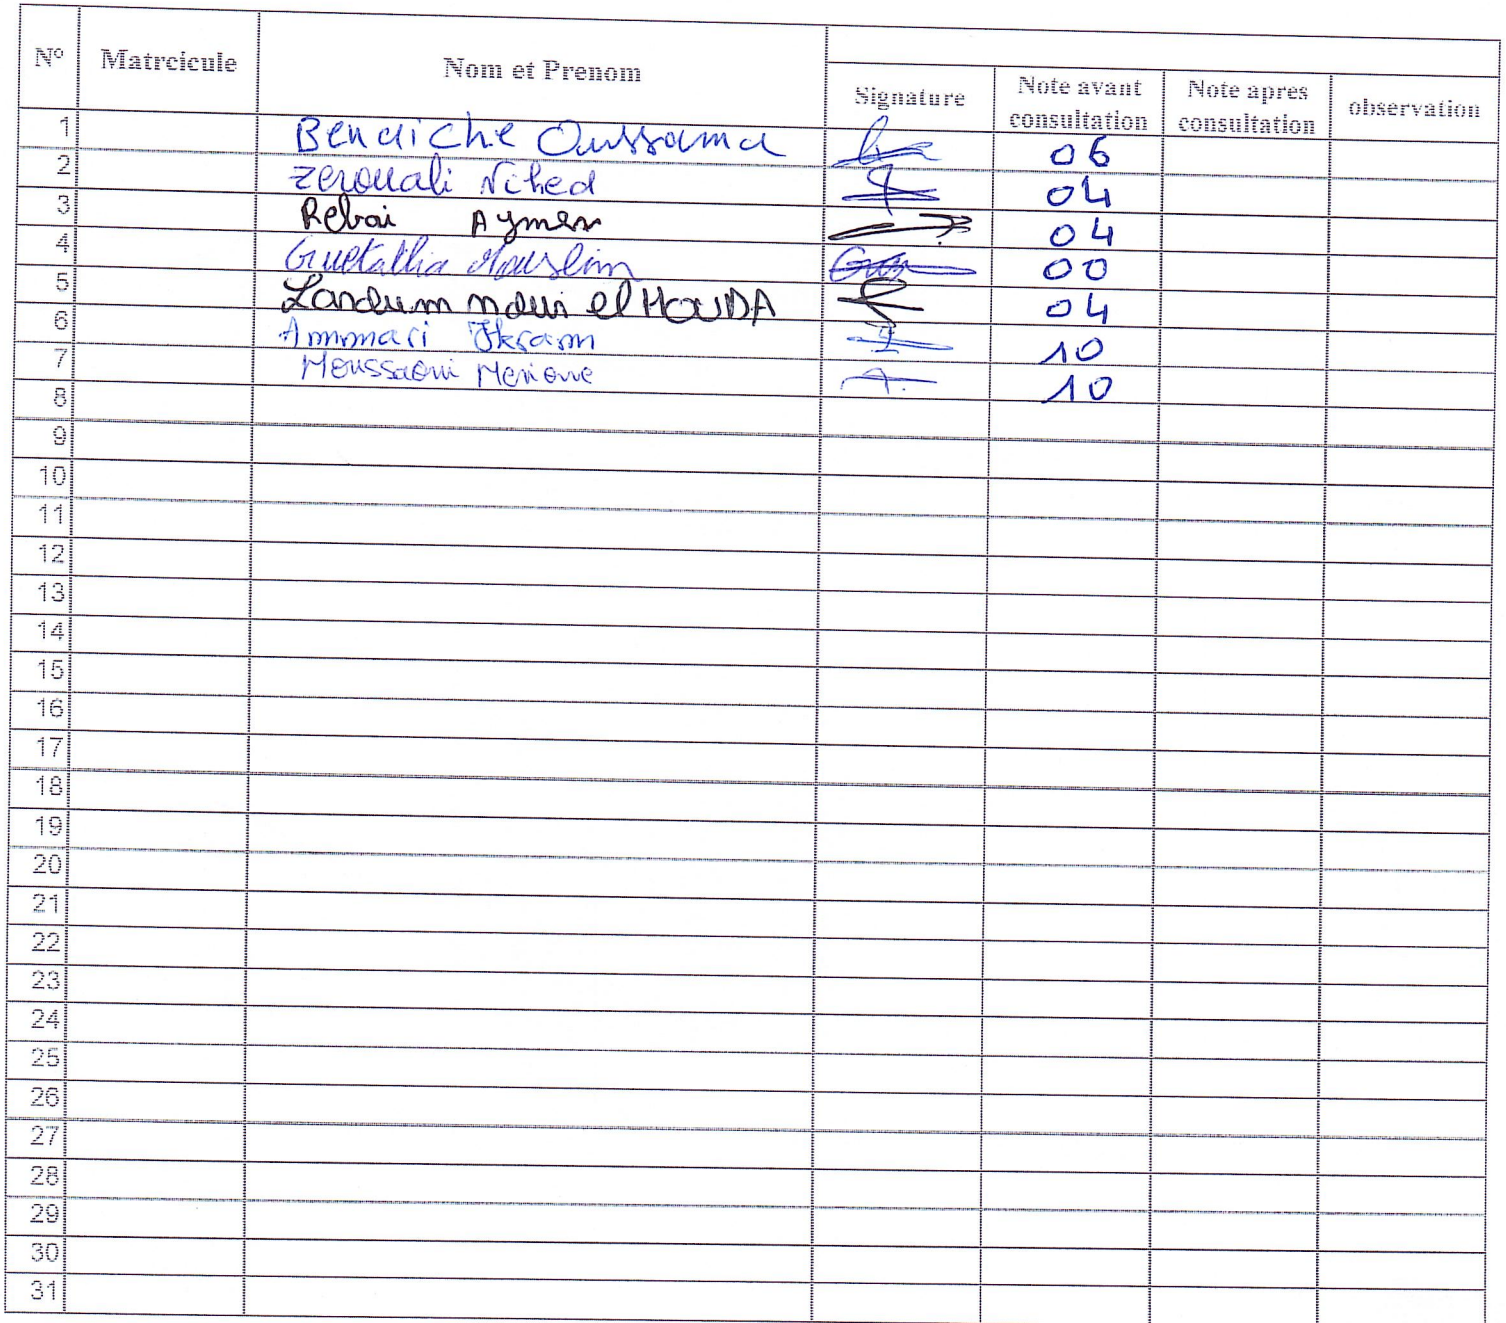 N° Matrcicule Nom et Prenom Signature Note avant consultation Note apres consultation observation
1 Benaiche Oussama 06
2 Zerouali Nihed 04
3 Rebai Aymen 04
4 Guetallia Mouslim 00
5 el HOUDA 04
6 Ammari Ikram 10
7 Moussaoui 10
8
9
10
11
12
13
14
15
16
17
18
19
20
21
22
23
24
25
26
27
28
29
30
31